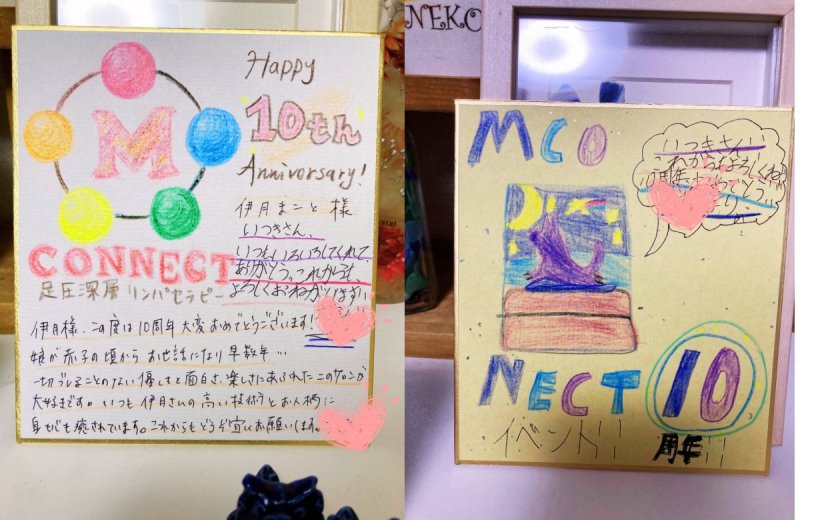 Happy
10th
Anniversary!
M
CONNECT
足圧深層リンパセラピー
伊月まこと様
いつきさん、
いつもいろいろしてくれて、
ありがとう。これからも、
よろしくおねがいします!!
伊月様、この度は10周年大変おめでとうございます!
娘が赤子の頃からお世話になり早数年…
一切ブレることのない優しさと面白さ、楽しさにあふれたこのサロンが
大好きです。いつも伊月さんの高い技術とお人柄に
身も心も癒されています。これからもどうぞ宜しくお願いします。
NEKO
MCO
いつきさん!!
これからもよろしくね!
10周年おめでとう
NECT
10
イベント!!
周年!!